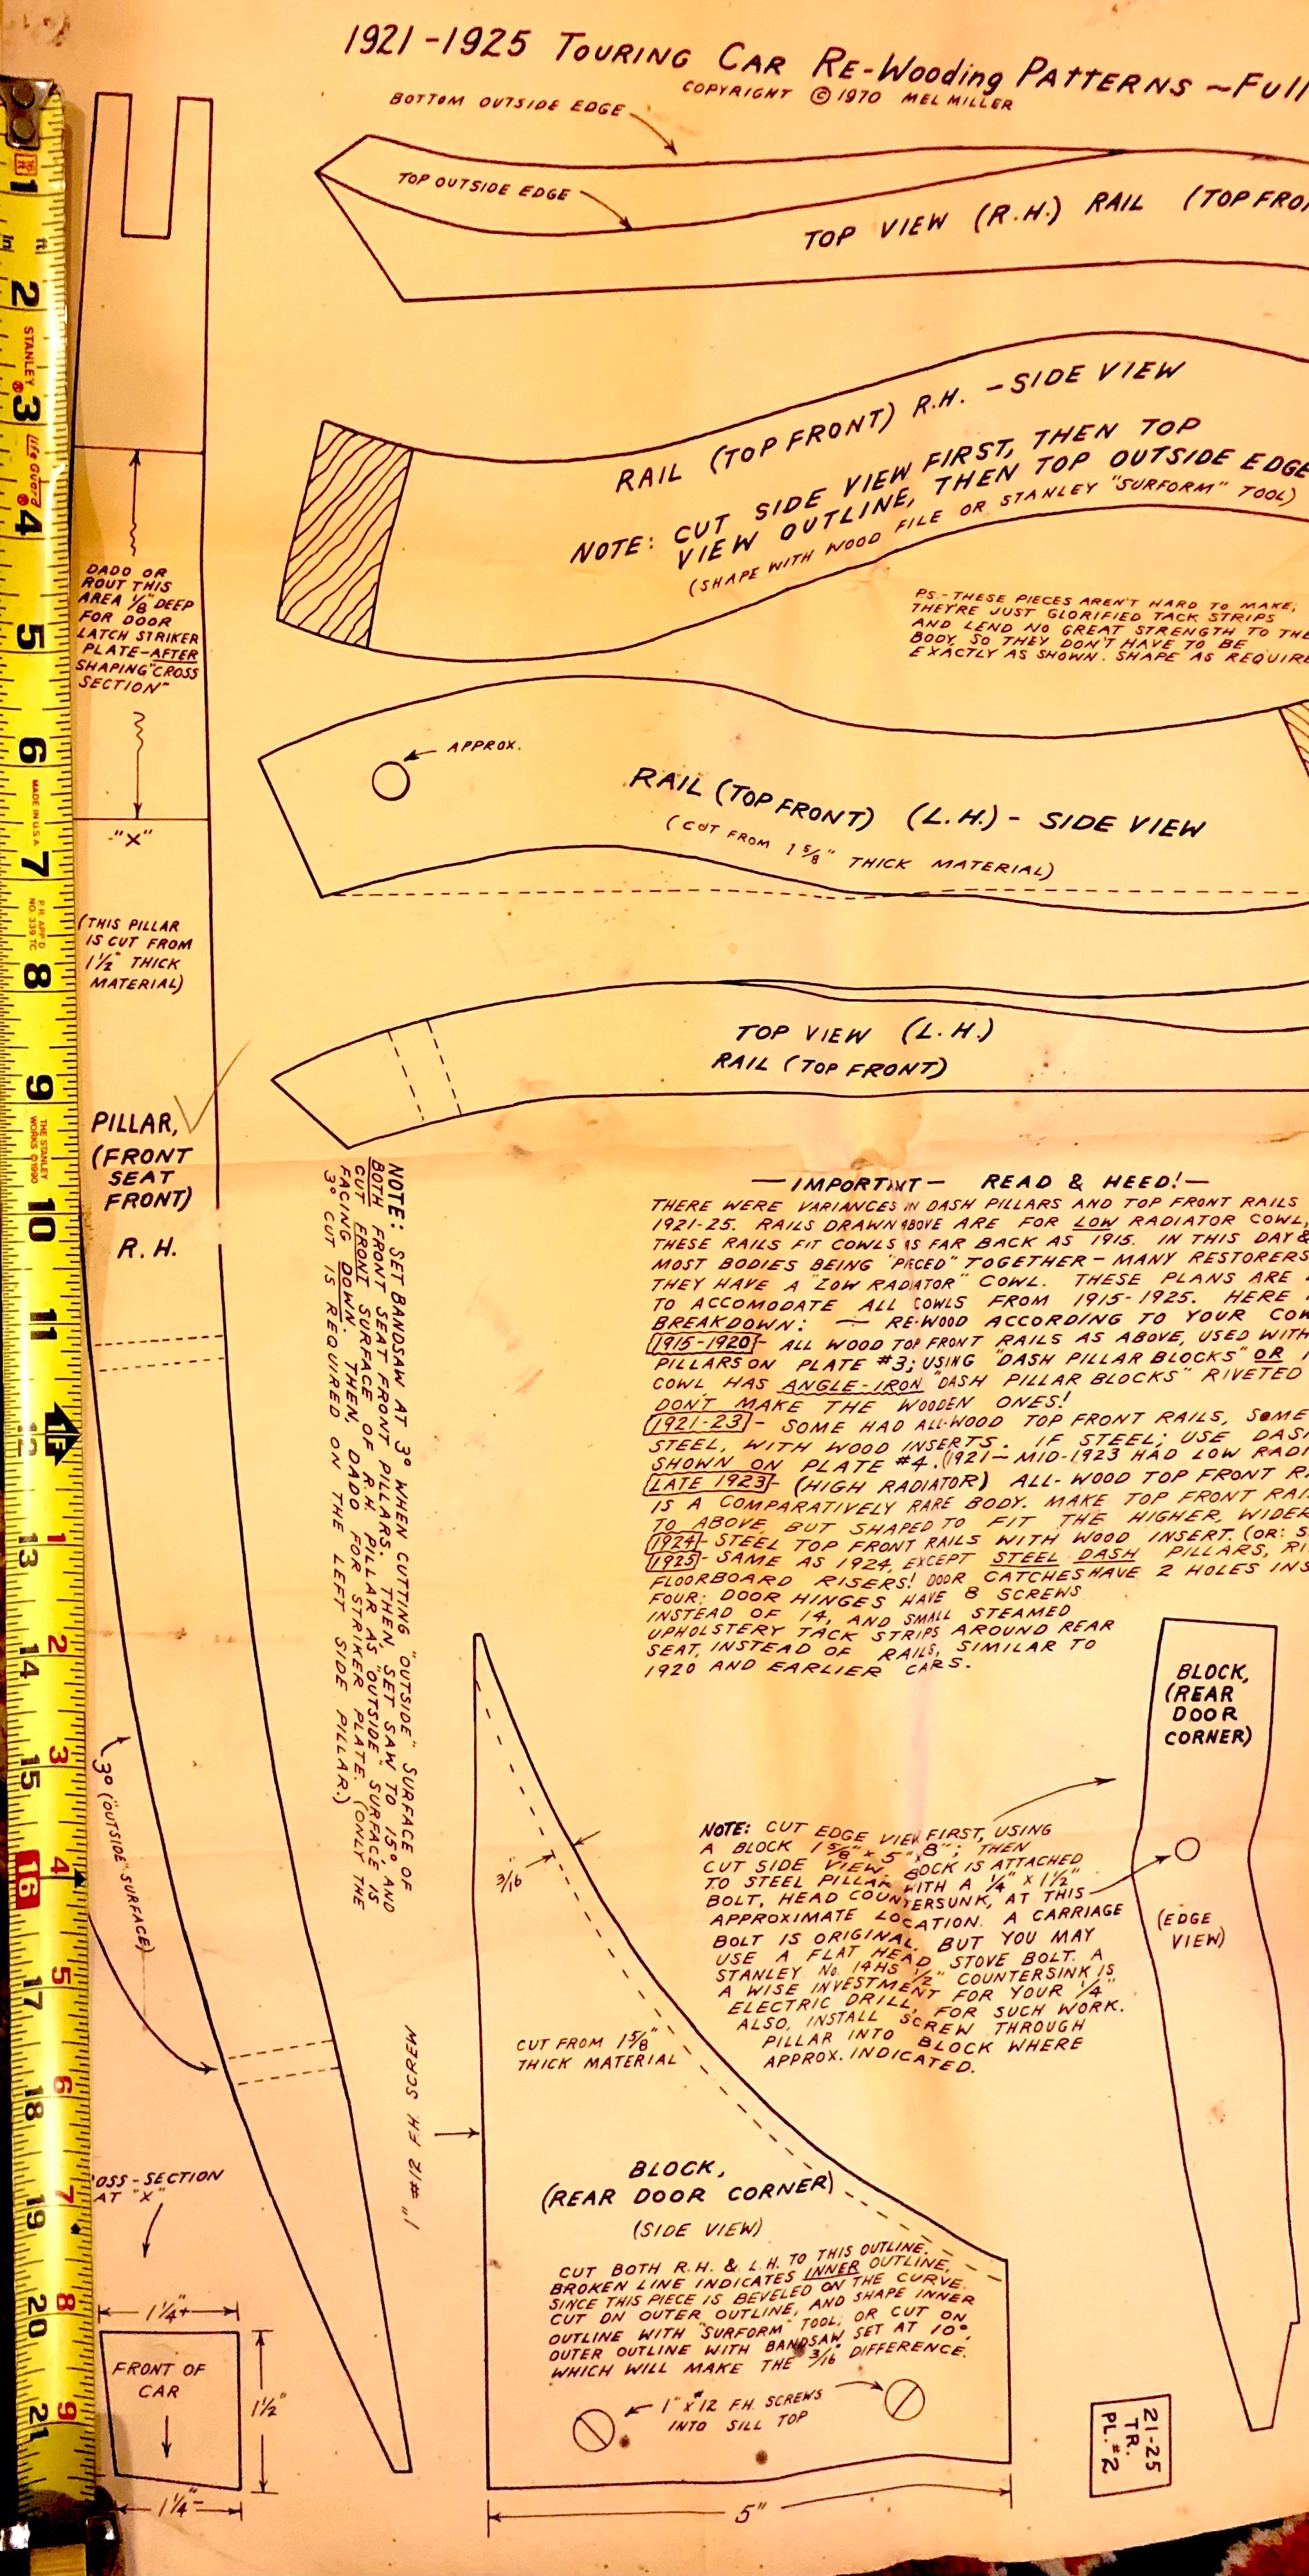 1921-1925 TOURING CAR RE-WOODING PATTERNS ~ FULL
COPYRIGHT © 1970 MEL MILLER
BOTTOM OUTSIDE EDGE
TOP OUTSIDE EDGE
TOP VIEW (R.H.) RAIL (TOP FRO
RAIL (TOP FRONT) R.H. - SIDE VIEW
NOTE: CUT SIDE VIEW FIRST, THEN TOP
VIEW OUTLINE, THEN TOP OUTSIDE EDGE
(SHAPE WITH WOOD FILE OR STANLEY "SURFORM" TOOL)
P.S.- THESE PIECES AREN'T HARD TO MAKE,
THEY'RE JUST GLORIFIED TACK STRIPS
AND LEND NO GREAT STRENGTH TO THE
BODY, SO THEY DON'T HAVE TO BE
EXACTLY AS SHOWN. SHAPE AS REQUIRE
DADO OR
ROUT THIS
AREA 1/8" DEEP
FOR DOOR
LATCH STRIKER
PLATE-AFTER
SHAPING "CROSS
SECTION"
-"X"
(THIS PILLAR
IS CUT FROM
1 1/2" THICK
MATERIAL)
PILLAR,
(FRONT
SEAT
FRONT)
R.H.
APPROX.
RAIL (TOP FRONT) (L.H.) - SIDE VIEW
(CUT FROM 1 5/8" THICK MATERIAL)
TOP VIEW (L.H.)
RAIL (TOP FRONT)
NOTE: SET BANDSAW AT 3° WHEN CUTTING "OUTSIDE" SURFACE OF
BOTH FRONT SEAT FRONT PILLARS. THEN, SET SAW TO 15° AND
CUT FRONT SURFACE OF R.H. PILLAR AS "OUTSIDE" SURFACE IS
FACING DOWN. THEN, DADO FOR STRIKER PLATE. (ONLY THE
3° CUT IS REQUIRED ON THE LEFT SIDE PILLAR.)
— IMPORTANT — READ & HEED! —
THERE WERE VARIANCES IN DASH PILLARS AND TOP FRONT RAILS
1921-25. RAILS DRAWN ABOVE ARE FOR LOW RADIATOR COWL,
THESE RAILS FIT COWLS AS FAR BACK AS 1915. IN THIS DAY &
MOST BODIES BEING "PIECED" TOGETHER - MANY RESTORERS
THEY HAVE A "LOW RADIATOR" COWL. THESE PLANS ARE
TO ACCOMODATE ALL COWLS FROM 1915-1925. HERE
BREAKDOWN: — RE-WOOD ACCORDING TO YOUR COW
1915-1920 - ALL WOOD TOP FRONT RAILS AS ABOVE, USED WITH
PILLARS ON PLATE #3; USING "DASH PILLAR BLOCKS" OR
COWL HAS ANGLE-IRON "DASH PILLAR BLOCKS" RIVETED
DON'T MAKE THE WOODEN ONES!
1921-23 - SOME HAD ALL-WOOD TOP FRONT RAILS, SOME
STEEL, WITH WOOD INSERTS. IF STEEL; USE DAS
SHOWN ON PLATE #4. (1921-MID-1923 HAD LOW RADI
LATE 1923 - (HIGH RADIATOR) ALL-WOOD TOP FRONT R
IS A COMPARATIVELY RARE BODY. MAKE TOP FRONT RAI
TO ABOVE BUT SHAPED TO FIT THE HIGHER, WIDER
1924 - STEEL TOP FRONT RAILS WITH WOOD INSERT. (OR: S
1925 - SAME AS 1924, EXCEPT STEEL DASH PILLARS, RI
FLOORBOARD RISERS! DOOR CATCHES HAVE 2 HOLES INS
FOUR; DOOR HINGES HAVE 8 SCREWS
INSTEAD OF 14, AND SMALL STEAMED
UPHOLSTERY TACK STRIPS AROUND REAR
SEAT, INSTEAD OF RAILS, SIMILAR TO
1920 AND EARLIER CARS.
BLOCK,
(REAR
DOOR
CORNER)
(EDGE
VIEW)
NOTE: CUT EDGE VIEW FIRST, USING
A BLOCK 1 5/8" x 5" x 8"; THEN
CUT SIDE VIEW. BOCK IS ATTACHED
TO STEEL PILLAR WITH A 1/4" x 1 1/2"
BOLT, HEAD COUNTERSUNK, AT THIS
APPROXIMATE LOCATION. A CARRIAGE
BOLT IS ORIGINAL. BUT YOU MAY
USE A FLAT HEAD STOVE BOLT. A
STANLEY No. 14HS 1/2" COUNTERSINK IS
A WISE INVESTMENT FOR YOUR 1/4"
ELECTRIC DRILL, FOR SUCH WORK.
ALSO, INSTALL SCREW THROUGH
PILLAR INTO BLOCK WHERE
APPROX. INDICATED.
3° ("OUTSIDE" SURFACE)
3/16
CUT FROM 1 5/8"
THICK MATERIAL
1" #12 F.H. SCREW
BLOCK,
(REAR DOOR CORNER)
(SIDE VIEW)
CUT BOTH R.H. & L.H. TO THIS OUTLINE.
BROKEN LINE INDICATES INNER OUTLINE,
SINCE THIS PIECE IS BEVELED ON THE CURVE.
CUT ON OUTER OUTLINE, AND SHAPE INNER
OUTLINE WITH "SURFORM" TOOL, OR CUT ON
OUTER OUTLINE WITH BANDSAW SET AT 10°,
WHICH WILL MAKE THE 3/16 DIFFERENCE.
1" x #12 F.H. SCREWS
INTO SILL TOP
5"
OSS-SECTION
AT "X"
1 1/4"+
FRONT OF
CAR
1 1/2"
1 1/4"-
21-25
TR.
PL. #2
1
2
STANLEY ®
3
life Guard ®
4
5
6
MADE IN U.S.A.
7
P.R. APP'D
NO. 339 TC
8
9
THE STANLEY
WORKS ©1990
10
11
1F
13 1
14 2
15 3
16 4
17 5
18 6
19 7
20 8
21 9